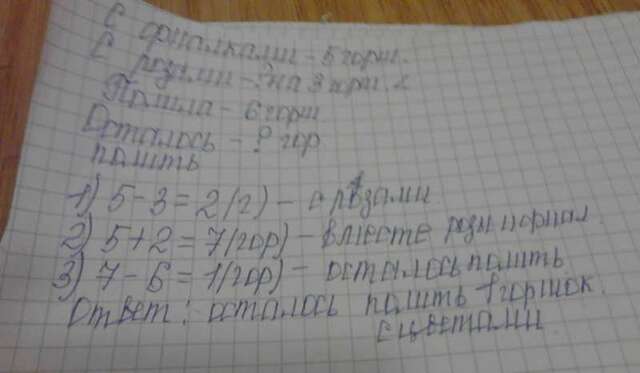 С фиалками - 5 горш.
С розами - ? на 3 горш. <
Полила - 6 горш
Осталось - ? гор
полить
1) 5 - 3 = 2 (г) - с розами
2) 5 + 2 = 7 (гор) - вместе розы и фиал.
3) 7 - 6 = 1 (гор) - осталось полить
Ответ: осталось полить 1 горшок.
с цветами